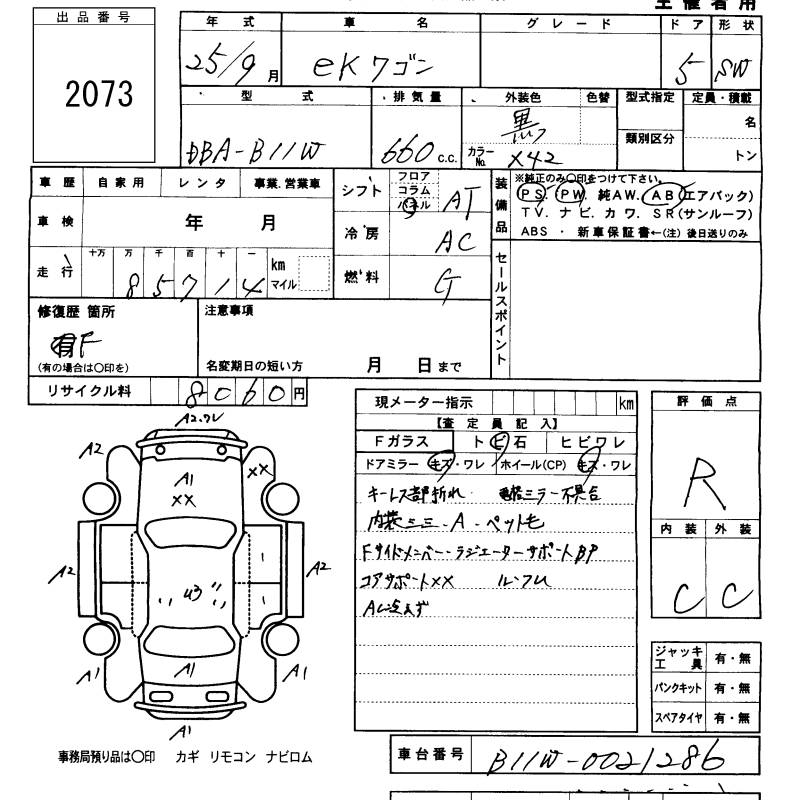 主催者用
出品番号
2073
年式 車名 グレード ドア 形状
25/9月 eKワゴン 5 SW
型式 排気量 外装色 色替 型式指定 定員・積載
DBA-B11W 660c.c. 黒 カラーNo. X42 類別区分 名 トン
車歴 自家用 レンタ 事業.営業車
車検 年 月
走行 十万 万 千 百 十 一 km マイル
85714
シフト フロア コラム パネル AT
冷房 AC
燃料 G
装備品
※純正のみ〇印をつけて下さい。
PS. PW. 純AW. AB(エアバック)
TV. ナビ. カワ. SR(サンルーフ)
ABS ・ 新車保証書←(注)後日送りのみ
セールスポイント
修復歴 箇所
有F
(有の場合は〇印を)
注意事項
名変期日の短い方 月 日まで
リサイクル料 8060円
A2.ワレ
A2
XX
A1
XX
A2
A2
U3
A1
A1
A1
A1
事務局預り品は〇印 カギ リモコン ナビロム
現メーター指示 km
【査定員記入】
Fガラス トビ石 ヒビワレ
ドアミラー キズ・ワレ ホイール(CP) キズ・ワレ
キーレス部折れ 電格ミラー不具合
内装シミ・A・ペット毛
Fサイドメンバー・ラジエーターサポートBP
コアサポートXX ル・フU
評価点
R
内装 外装
C C
ジャッキ工具 有・無
パンクキット 有・無
スペアタイヤ 有・無
車台番号 B11W-0021286